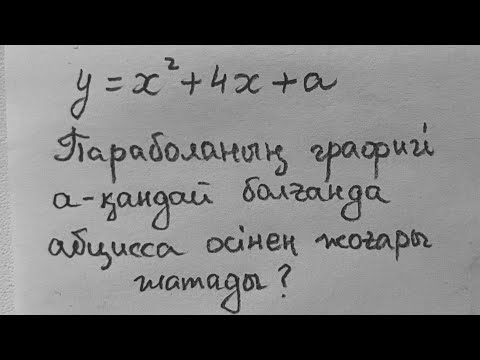 y = x² + 4x + a
Параболаның графигі
а-қандай болғанда
абцисса осінен жоғары
жатады?